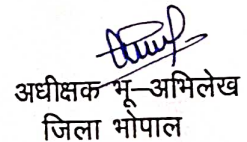 अधीक्षक भू–अभिलेख
जिला भोपाल